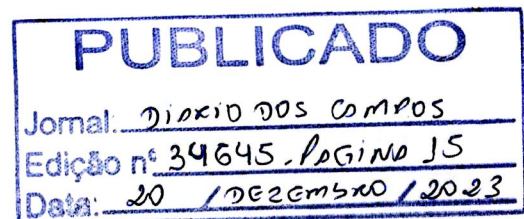 PUBLICADO
Jornal: DIARIO DOS CAMPOS
Edição nº 34645. PAGINA 15
Data: 20 / DEZEMBRO / 2023